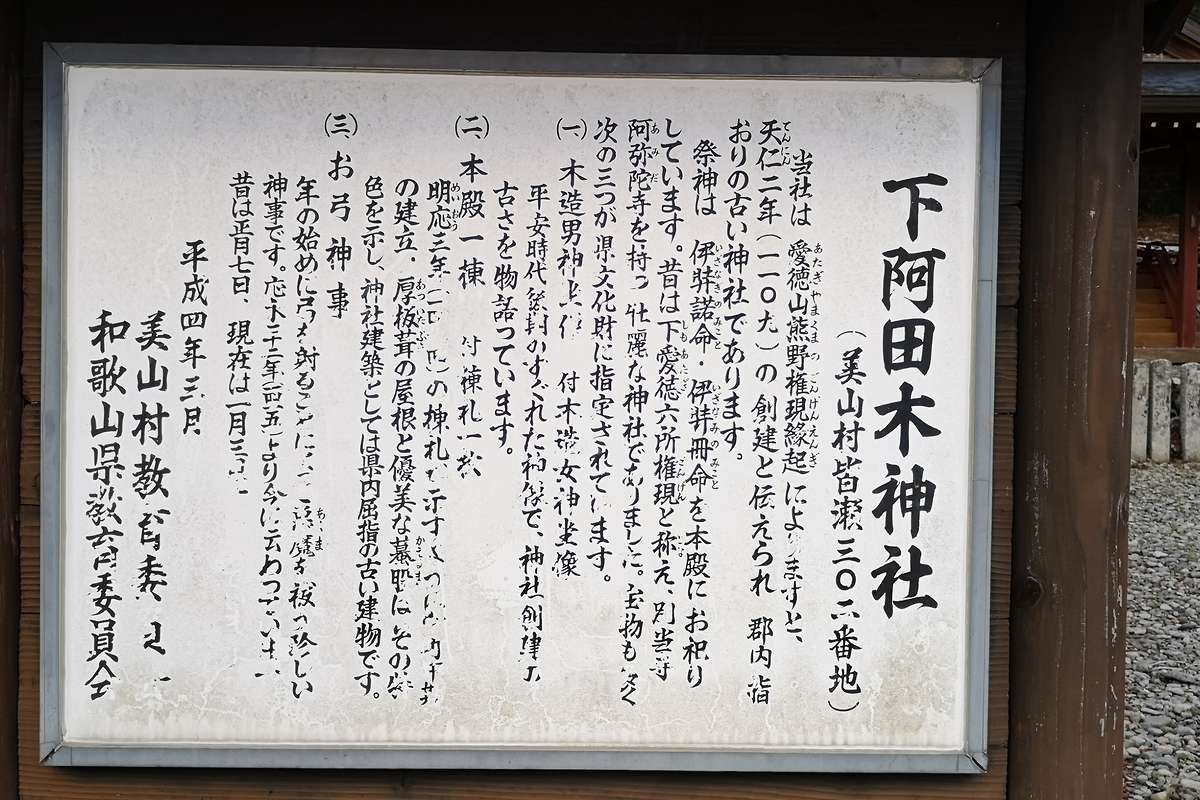 下阿田木神社
(美山村皆瀬三〇二番地)
当社は 愛徳山熊野権現縁起によりますと、
天仁二年(一一〇九)の創建と伝えられ 郡内 指
おりの古い神社であります。
祭神は 伊弉諾命・伊弉冊命を本殿にお祀り
しています。昔は下愛徳六所権現と称え、別当寺
阿弥陀寺を持つ 壮麗な神社でありました。宝物も多く
次の三つが県文化財に指定されています。
㈠ 木造男神坐像 付木造女神坐像
平安時代 のすぐれた神像で、神社創建の
古さを物語っています。
㈡ 本殿一棟 付棟札一枚
明応三年 の棟札 示す
の建立、厚板葺の屋根と優美な蟇股はその特
色を示し、神社建築としては県内屈指の古い建物です。
㈢ お弓神事
年の始めに弓を射ることに を祓う珍しい
神事です。応永三十二年 より今に伝わっています
昔は正月七日、現在は一月三日
平成四年三月
美山村教育委員
和歌山県教育委員会